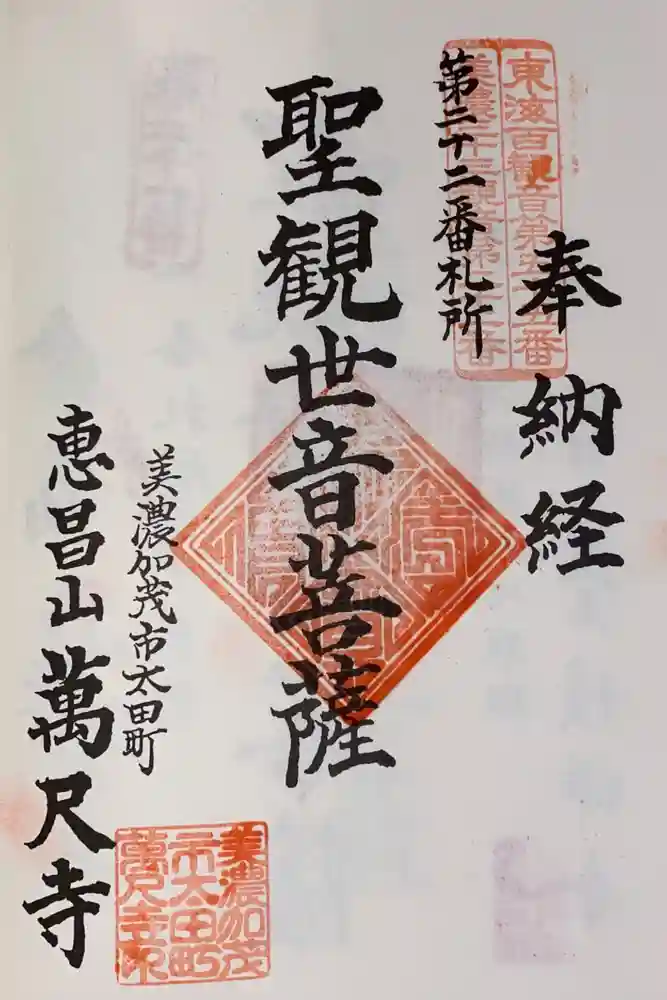 奉納経
東海百観音第五十五番
美濃三十三観音第二十二番
第二十二番札所
聖観世音菩薩
美濃加茂市太田町
恵昌山萬尺寺
美濃加茂
市太田町
萬尺寺印